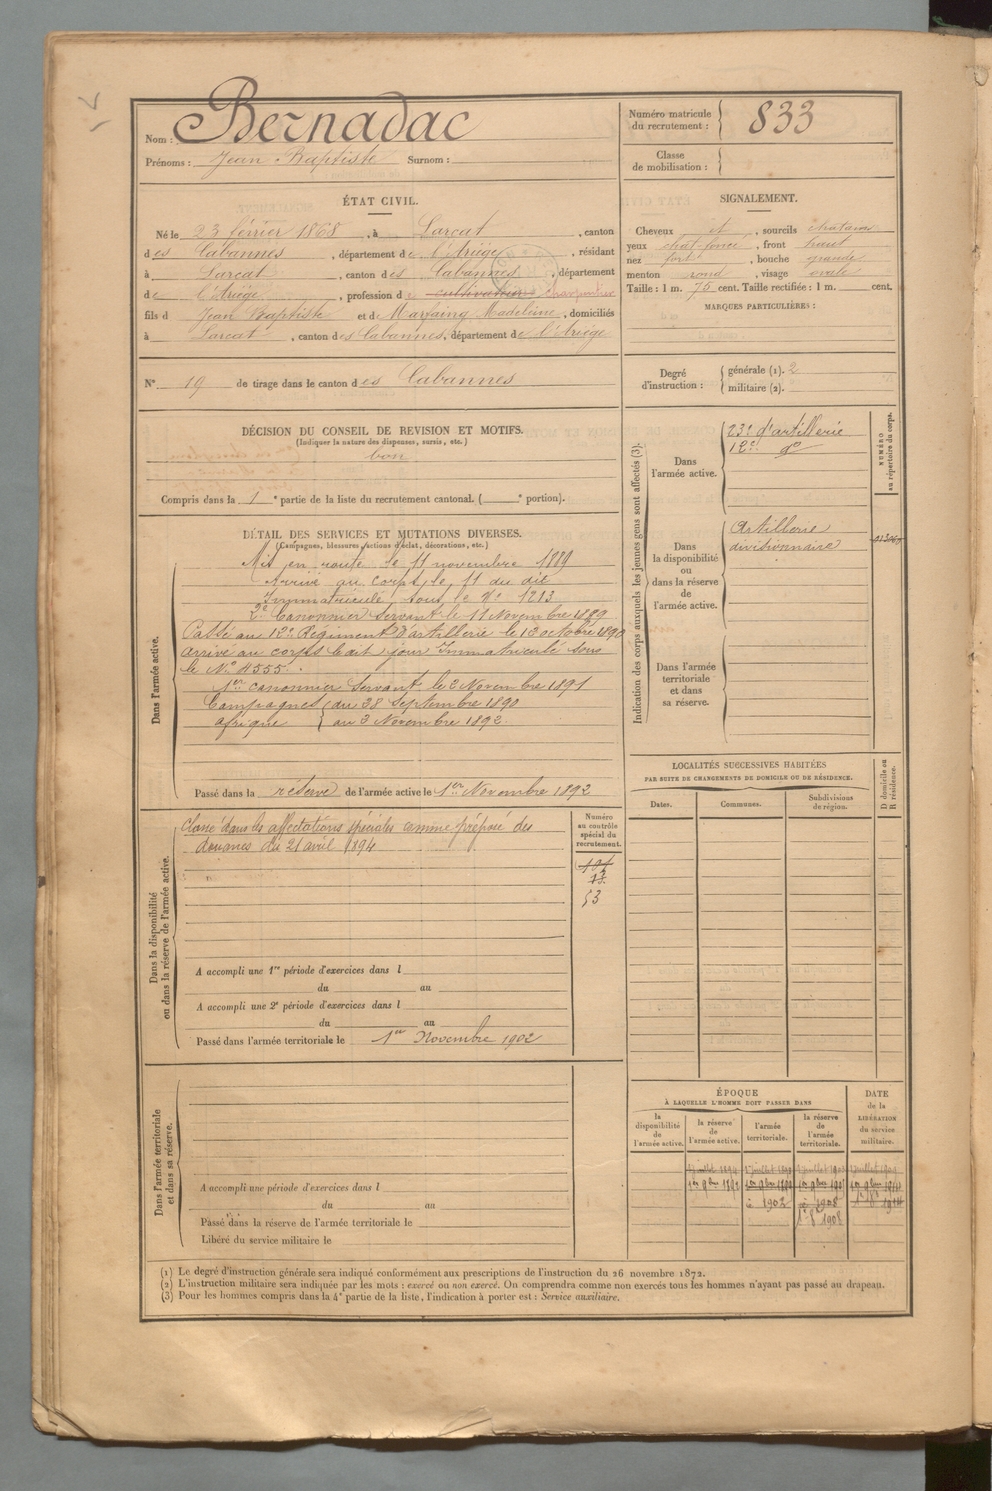 Nom : Bernadac
Prénoms : Jean Baptiste Surnom :
Numéro matricule du recrutement : 833
Classe de mobilisation :
ÉTAT CIVIL.
Né le 23 février 1868, à Larcat, canton
des Cabannes, département de l'Ariége, résidant
à Larcat, canton des Cabannes, département
de l'Ariége, profession de cultivateur charpentier
fils d Jean Baptiste et de Marfaing Madeleine, domiciliés
à Larcat, canton des Cabannes, département de l'Ariége
N° 19 de tirage dans le canton des Cabannes
SIGNALEMENT.
Cheveux et, sourcils chatains
yeux chat. foncé, front haut
nez fort, bouche grande
menton rond, visage ovale
Taille : 1 m. 75 cent. Taille rectifiée : 1 m. cent.
MARQUES PARTICULIÈRES :
Degré d'instruction : générale (1). 2
militaire (2).
DÉCISION DU CONSEIL DE REVISION ET MOTIFS.
(Indiquer la nature des dispenses, sursis, etc.)
bon
Compris dans la 1e partie de la liste du recrutement cantonal. ( e portion).
DÉTAIL DES SERVICES ET MUTATIONS DIVERSES.
(Campagnes, blessures, actions d'éclat, décorations, etc.)
Dans l'armée active.
Mis en route le 11 novembre 1889
Arrivé au corps le 11 du dit
Immatriculé sous le N° 1213
2e Canonnier Servant le 11 Novembre 1889
Passé au 12e Régiment d'artillerie le 13 octobre 1890
arrivé au corps ledit jour Immatriculé sous
le N° 4555.
1er canonnier Servant le 2 Novembre 1891
Campagnes du 28 Septembre 1890
afrique au 3 Novembre 1892.
Passé dans la réserve de l'armée active le 1er Novembre 1892
Indication des corps auxquels les jeunes gens sont affectés (3).
NUMÉRO au répertoire du corps.
Dans l'armée active.
23e d'artillerie
12e do
Dans la disponibilité ou dans la réserve de l'armée active.
Artillerie
divisionnaire
Dans l'armée territoriale et dans sa réserve.
Dans la disponibilité ou dans la réserve de l'armée active.
Classé dans les affectations spéciales comme préposé des
douanes du 21 avril 1894
Numéro au contrôle spécial du recrutement.
53
A accompli une 1re période d'exercices dans l
du au
A accompli une 2e période d'exercices dans l
du au
Passé dans l'armée territoriale le 1er Novembre 1902
LOCALITÉS SUCCESSIVES HABITÉES
PAR SUITE DE CHANGEMENTS DE DOMICILE OU DE RÉSIDENCE.
Dates. Communes. Subdivisions de région. D domicile ou R résidence.
Dans l'armée territoriale et dans sa réserve.
A accompli une période d'exercices dans l
du au
Passé dans la réserve de l'armée territoriale le
Libéré du service militaire le
ÉPOQUE
À LAQUELLE L'HOMME DOIT PASSER DANS
la disponibilité de l'armée active. la réserve de l'armée active. l'armée territoriale. la réserve de l'armée territoriale.
DATE de la LIBÉRATION du service militaire.
1er 9bre 1892
1902
1908
1908
(1) Le degré d'instruction générale sera indiqué conformément aux prescriptions de l'instruction du 26 novembre 1872.
(2) L'instruction militaire sera indiquée par les mots : exercé ou non exercé. On comprendra comme non exercés tous les hommes n'ayant pas passé au drapeau.
(3) Pour les hommes compris dans la 4e partie de la liste, l'indication à porter est : Service auxiliaire.